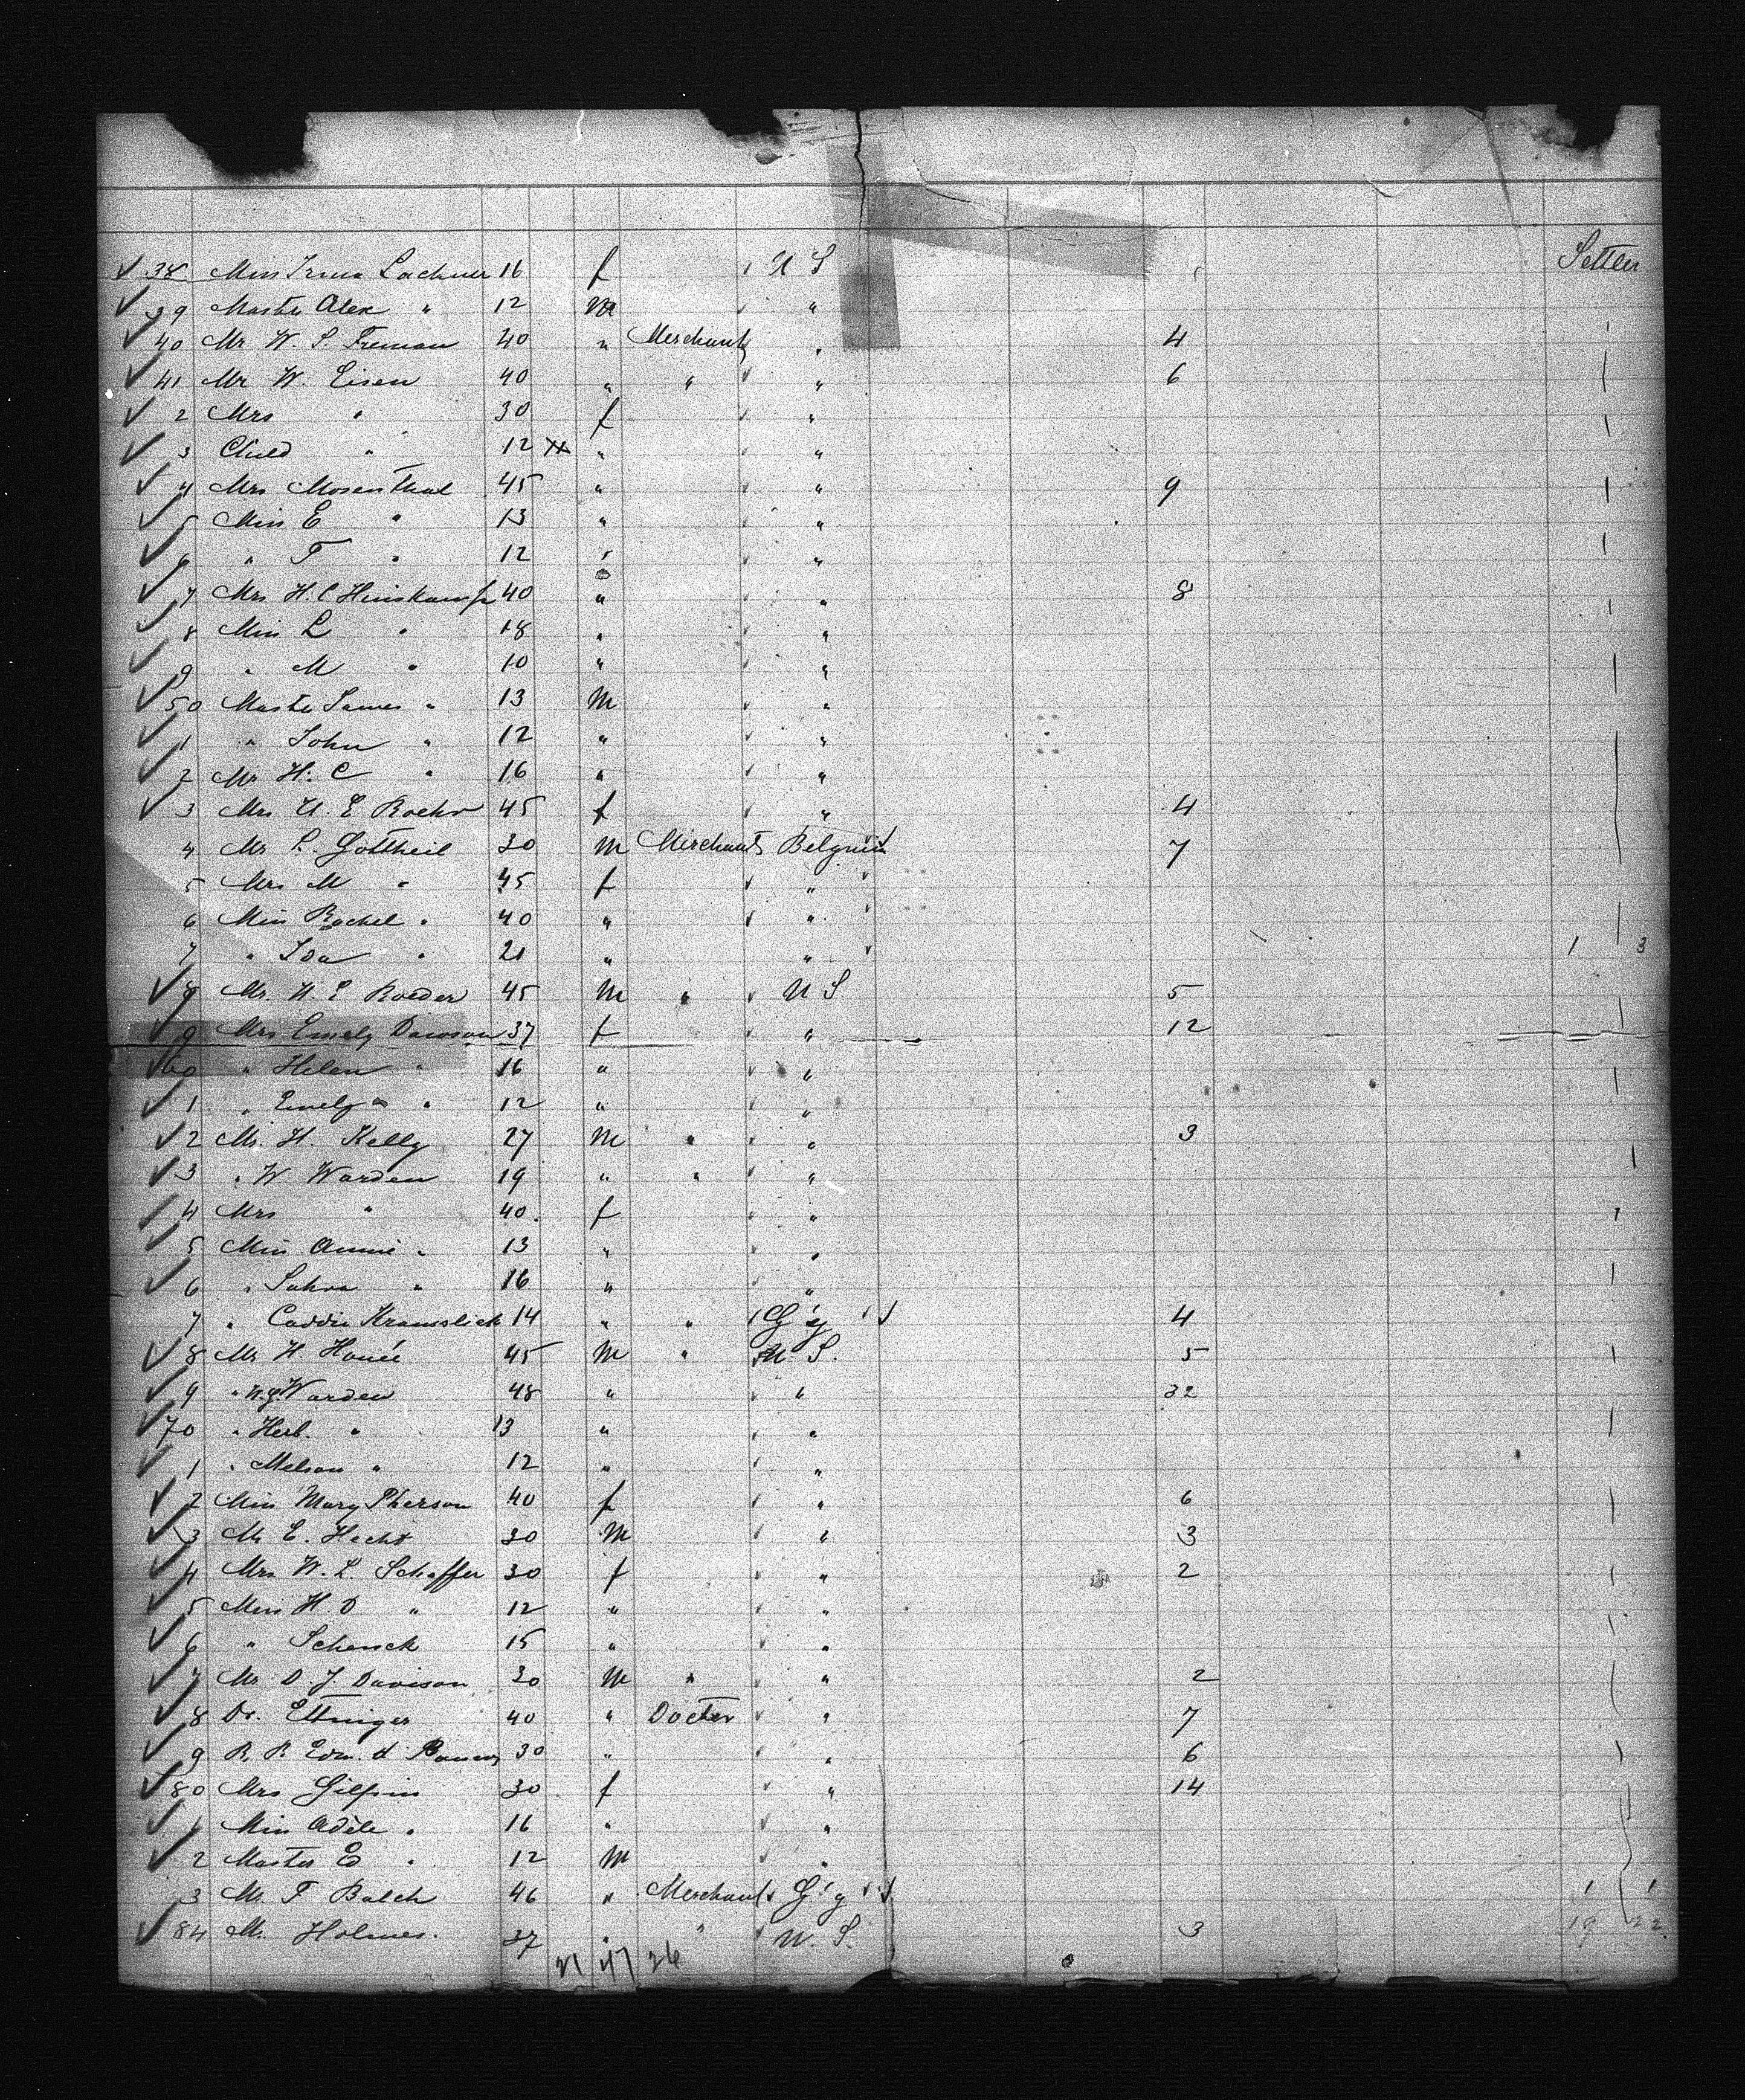 Settler
38 Miss Irma Lachner 16 f U S
39 Master Alex " 12 M "
40 Mr W. S. Freman 40 " Merchant " 4
41 Mr W. Eisen 40 " " " 6
2 Mrs " 30 f "
3 Child " 12 " "
4 Mrs Mosenthal 45 " " 9
5 Miss E " 13 " "
6 " F " 12 " "
7 Mrs H. C Hinskamp 40 " " 8
8 Miss L " 18 " "
9 " M " 10 " "
50 Maste James " 13 M "
1 " John " 12 " "
2 Mr H. C " 16 " "
3 Mrs U. E Roehr 45 f " 4
4 Mr L. Gottheil 30 M Merchant Belgium 7
5 Mrs M " 45 f "
6 Miss Rachel " 40 " "
7 " Ida " 21 " " 1 3
8 Mr. H. E Roeder 45 M " U S 5
9 Mrs Emely Dawson 37 f " 12
60 " Helen " 16 " "
1 " Emely " 12 " "
2 Mr. H. Kelly 27 M " " 3
3 " W Warden 19 " " "
4 Mrs " 40 f "
5 Miss Annie " 13 " "
6 " Sahra " 16 " "
7 " Caddie 14 " " G'y 4
8 Mr H. Houée 45 M " U S. 5
9 " W. G. Warden 48 " " 32
70 " Herb. " 13 " "
1 " Melson " 12 " "
2 Miss Mary Pherson 40 f " 6
3 Mr E. Hecht 30 M " 3
4 Mrs W. L. Schaffer 30 f " 2
5 Miss H. D " 12 " "
6 " Schenck 15 " "
7 Mr D. J. Davison 30 M " " 2
8 Dr. Ettinger 40 " Docter " 7
9 R. R Edm. d 30 " " 6
80 Mrs Gilpin 30 f " 14
1 Miss Adèle " 16 " "
2 Master Ed " 12 M "
3 Mr F Balch 46 " Merchant G'y 1 1
84 Mr. Holmes. 37 " " U. S. 3 19 22
21 47 26